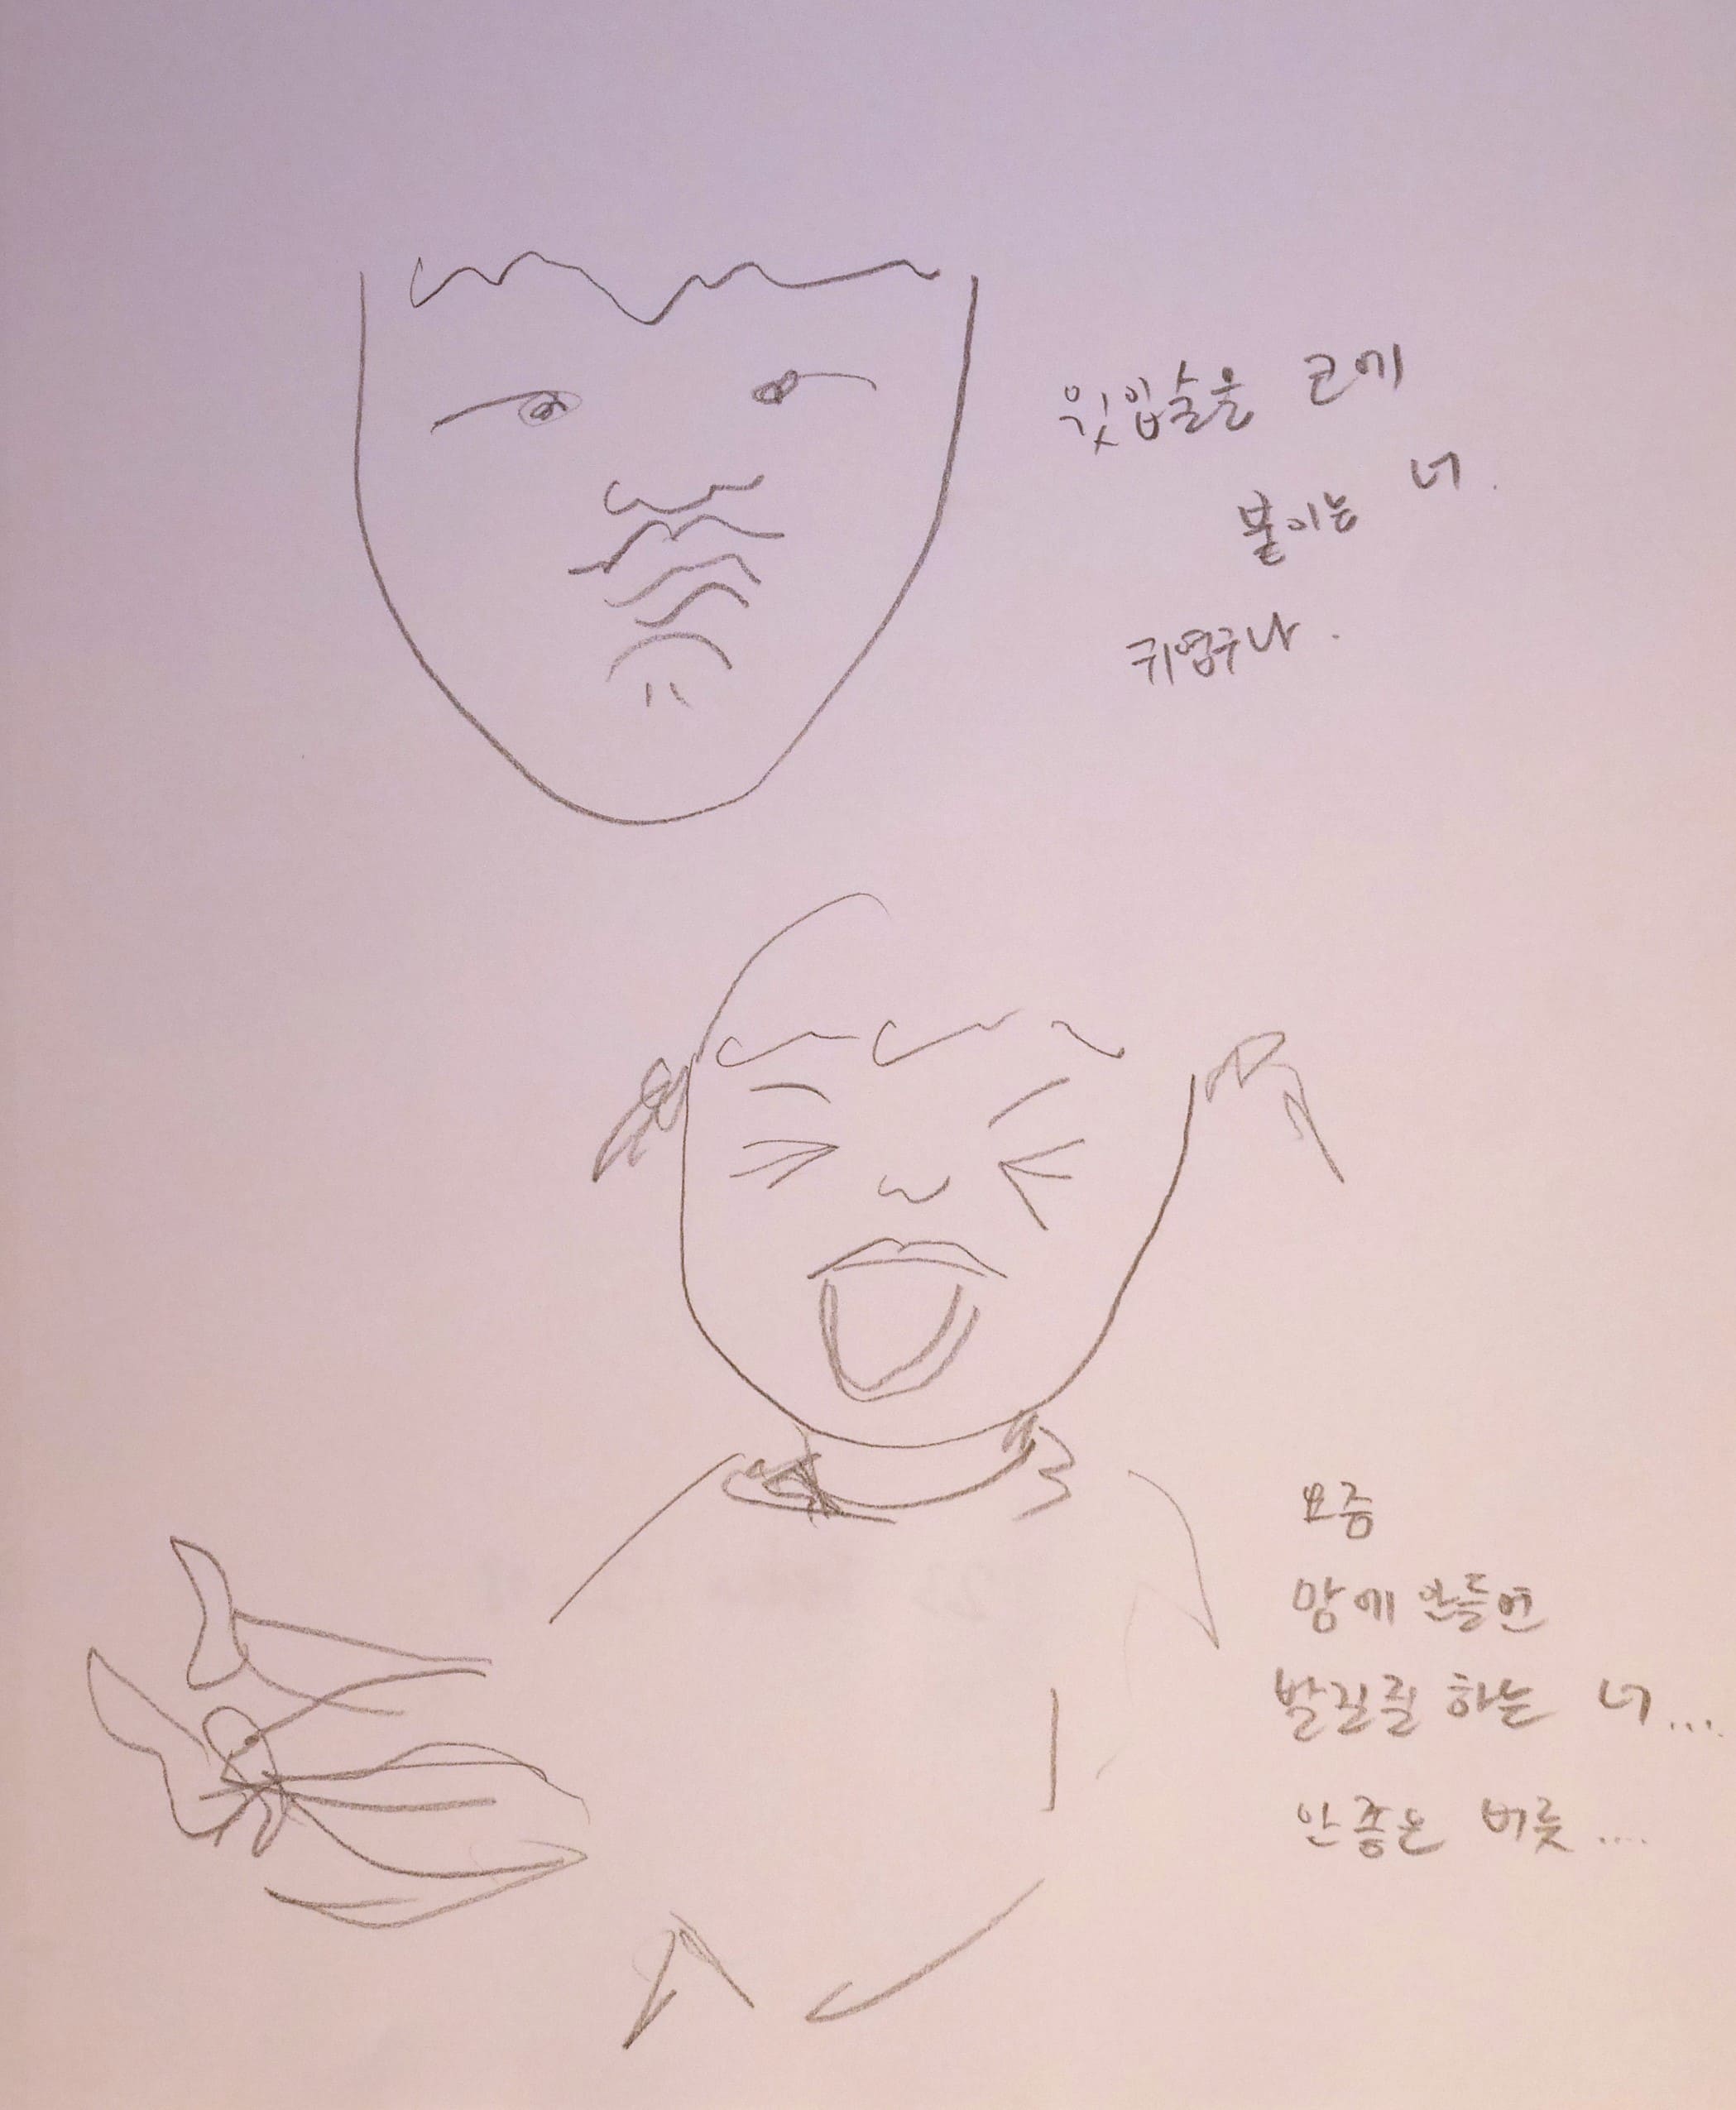 윗입술을 코에
붙이는 너.
귀엽구나.
요즘
맘에 안들면
발길질 하는 너...
안좋은 버릇....